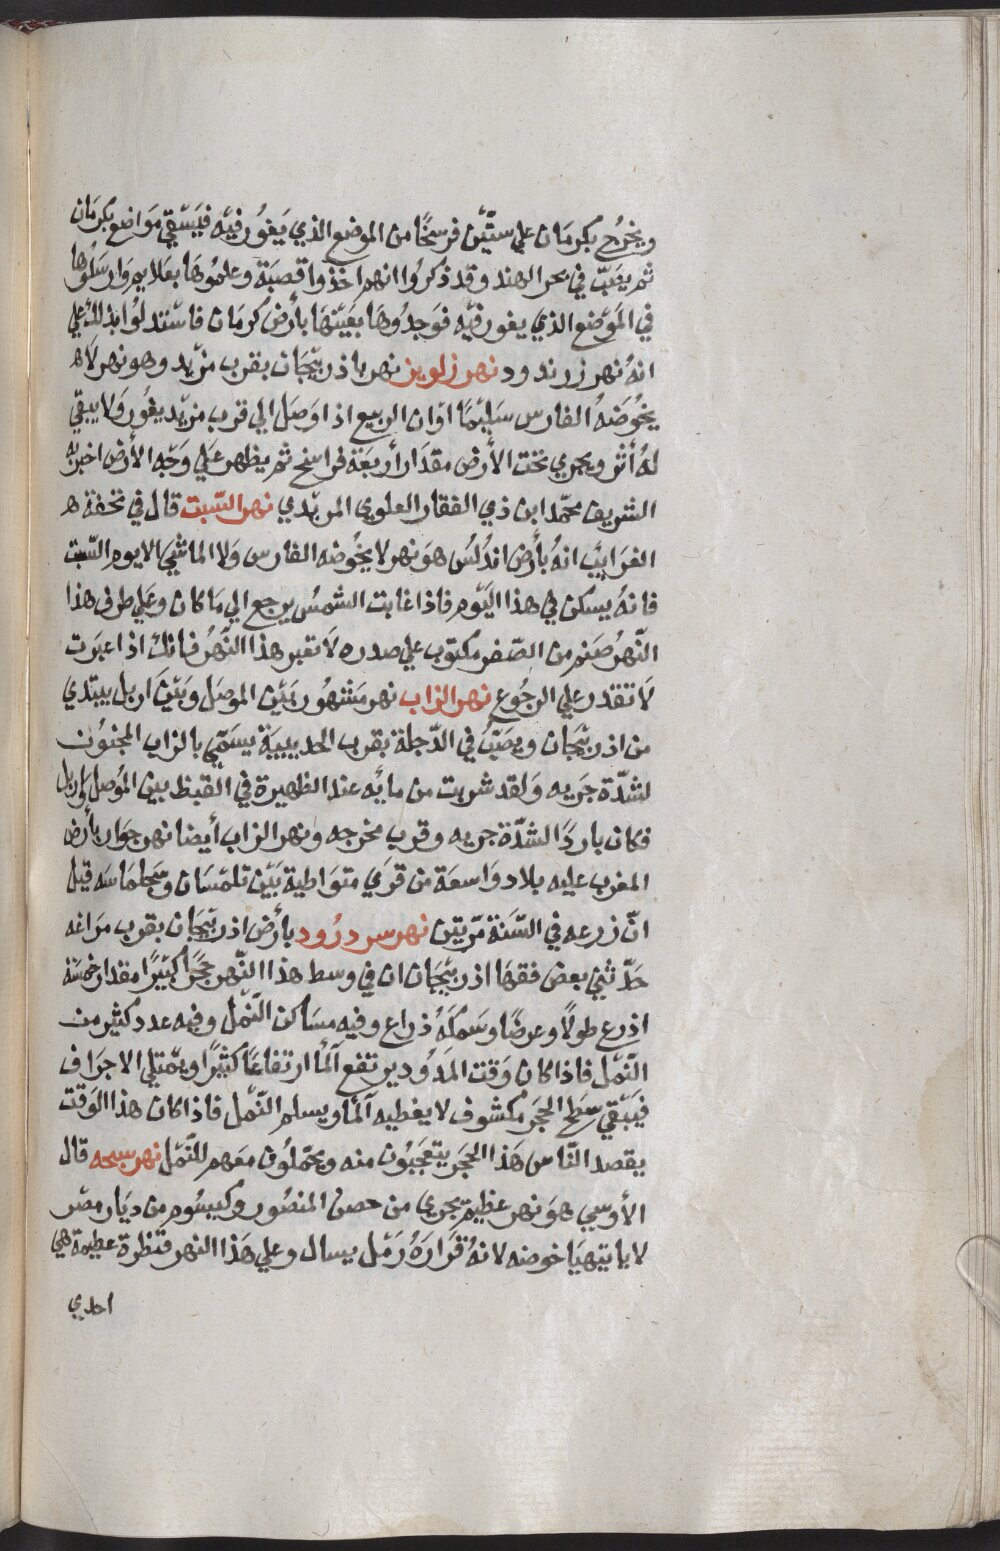 ويخرُج بكرمَان علي ستّين فرسخًا من الموضع الذي يَغورُ فيْه فيَسْقي مَواضع بكرمَان
ثم يصَبّ في بحر الهند وقد ذكرُوا انهم اخذوا قصبَة وعلمُوهَا بعَلايم وَارسَلوُها
في المَوْضع الذي يغور فيْه فوَجدُوهَا بعَيْنهَا بأرض كرمَان فاسْتدلوُا بذلك علي
انهُ نهر زرندود نهر زلوين نهر باذربيْجَان بقرب مزيد وهو نهر لا ه
يخُوضَهُ الفارس سَليْمًا اوَان الربيع اذا وَصَل الي قرب مزيد يغُور وَلا يبقي
لهُ أثر ويجري تحت الأرض مقدَار أربَعَة فراسخ ثم يظهر عَلي وَجْه الأرض اخبرَ به
الشريف محمّد ابن ذي الفقار العلوي المزيدي نهر السّبت قال في تحفة ه
الغرَايب انهُ بأرض اندُلسُ هوَ نهر لا يخُوضه الفارس وَلا الماشي الا يوم السّبت
فانهُ يسكن في هذا اليَوْم فاذا غابت الشمسُ يرجع الي مَا كان وعَلي طرف هذا
النّهرُ صَنم من الصّفر مكتوب علي صدره لاَ تقبر هذا النّهرُ فانك اذا عبَرت
لاَ تقدر علي الرجُوع نهر الزاب نهر مَشهُور بَيْن الموصَل وبَيْن اربل يبتدي
من اذربيْجان ويصَبّ في الدّجلة بقرب الحديبيَة يسَمّي بالزاب المجنوُن
لشدّة جَريه وَلقد شربت من مايُه عند الظهيرة في القيظ بين الموُصل وإربل
فكان باردًا لشدّة جريه وقرب مخرجه ونهر الزاب أيضا نهر جوَار بأرض
المغرب عليه بلاد وَاسعَة من قرَي متوَاطية بَيْن تلمسَان وسَجلمَاسَه قيل
انّ زرعه في السّنَة مرّتين نهر سردرُود بأرض اذربيْجَان بقرب مرَاغه
حَدّثني بعض فقهَا اذربيْجَان ان في وسط هذا النّهر حجَرًا كبيْرًا مقدَار خمسَة
اذرع طولاً وعرضًا وسَمكَهُ ذراع وفيه مسَاكن النّمْل وفيه عدد كثير من
النّمْل فاذا كان وَقت المَدُود يرتفع آلمَا ارتفاعًا كثيْرًا ويمْتلي الاجرَاف
فيَبْقي سَطح الحجَر مكشوف لا يغطيه آلمَا ويسلم النّمْل فاذا كان هذا الوَقت
يقصد النّاس هَذا الحجَر يتعَجبُون منه ويحمْلوُن معَهم للنّمْل نهر سبحه قال
الأوسي هوَ نهر عظيم يجري من حصن المنصُور وكيسوُم من ديَار مصْر
لا يا يتهيَا خوضه لانهُ قرَارَهُ رَمْل يسال وعلي هَذا النهر قنظرة عظيمة هي
احدي